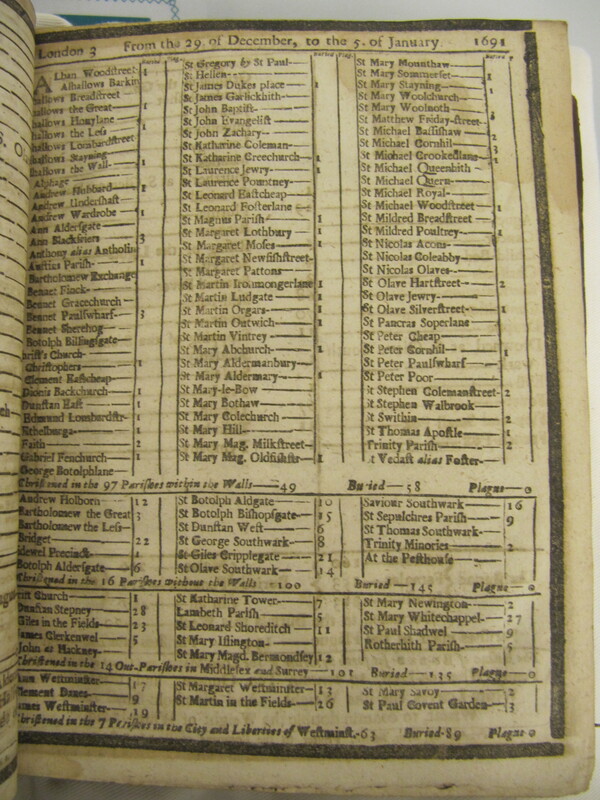 London 3 From the 29. of December, to the 5. of January. 1691
Buried Plag. Buried Plag. Buried
Alban Woodstreet 1
Alhallows Barkin
hallows Breadstreet
hallows the Great 1
hallows Honylane
hallows the Less
hallows Lombardstreet
hallows Stayning
hallows the Wall 1
Alphage
Andrew Hubbard 1
Andrew Undershaft
Andrew Wardrobe 1
Ann Aldersgate
Ann Blackfriers 3
Anthony alias Antholin
Austins Parish 1
Bartholomew Exchange
Bennet Finck
Bennet Gracechurch
Bennet Paulswharf 3
Bennet Sherehog
Botolph Billingsgate
hrist's Church
Christophers 1
Clement Eastcheap
Dionis Backchurch 1
Dunstan East 1
Edmund Lombardstr 1
Ethelburga 1
Faith 2
Gabriel Fenchurch 1
George Botolphlane
St Gregory by St Paul
St Hellen
St James Dukes place 1
St James Garlickhith
St John Baptist
St John Evangelist
St John Zachary
St Katharine Coleman
St Katharine Creechurch 1
St Laurence Jewry 1
St Laurence Pountney
St Leonard Eastcheap
St Leonard Fosterlane
St Magnus Parish 1
St Margaret Lothbury 1
St Margaret Moses 1
St Margaret Newfishstreet
St Margaret Pattons
St Martin Ironmongerlane 1
St Martin Ludgate 1
St Martin Orgars 1
St Martin Outwich 1
St Martin Vintrey
St Mary Abchurch 1
St Mary Aldermanbury
St Mary Aldermary 1
St Mary-le-Bow
St Mary Bothaw
St Mary Colechurch
St Mary Hill
St Mary Mag. Milkstreet
St Mary Mag. Oldfishstr 1
St Mary Mounthaw
St Mary Sommerset 1
St Mary Stayning
St Mary Woolchurch
St Mary Woolnoth
St Matthew Friday-street
St Michael Bassishaw 2
St Michael Cornhil
St Michael Crookedlane
St Michael Queenhith
St Michael Quern
St Michael Royal
St Michael Woodstreet 1
St Mildred Breadstreet
St Mildred Poultrey 1
St Nicolas Acons
St Nicolas Coleabby
St Nicolas Olaves
St Olave Hartstreet 2
St Olave Jewry
St Olave Silverstreet 1
St Pancras Soperlane
St Peter Cheap
St Peter Cornhil 1
St Peter Paulswharf
St Peter Poor
St Stephen Colemanstreet 2
St Stephen Walbrook
St Swithin 2
St Thomas Apostle 1
Trinity Parish 2
St Vedast alias Foster
Christned in the 97 Parishes within the Walls 49 Buried 58 Plague 0
Andrew Holborn 12
Bartholomew the Great 3
Bartholomew the Less
Bridget 22
idewel Precinct 1
Botolph Aldersgate 6
St Botolph Aldgate 10
St Botolph Bishopsgate 15
St Dunstan West 6
St George Southwark 8
St Giles Cripplegate 21
St Olave Southwark 14
Saviour Southwark 16
St Sepulchres Parish 9
St Thomas Southwark
Trinity Minories 2
At the Pesthouse
Christned in the 16 Parishes without the Walls 100 Buried 145 Plague 0
rist Church 1
Dunstan Stepney 28
Giles in the Fields 23
James Clerkenwel 5
John at Hackney
St Katharine Tower 7
Lambeth Parish 5
St Leonard Shoreditch 11
St Mary Islington
St Mary Magd. Bermondsey 12
St Mary Newington 2
St Mary Whitechappel 27
St Paul Shadwel 9
Rotherhith Parish 5
Christned in the 14 Out-Parishes in Middlesex and Surrey 101 Buried 135 Plague 0
Ann Westminster 17
Clement Danes 9
James Westminster 19
St Margaret Westminster 13
St Martin in the Fields 26
St Mary Savoy 2
St Paul Covent Garden 3
Christned in the 7 Parishes in the City and Liberties of Westminst. 63 Buried 89 Plague 0